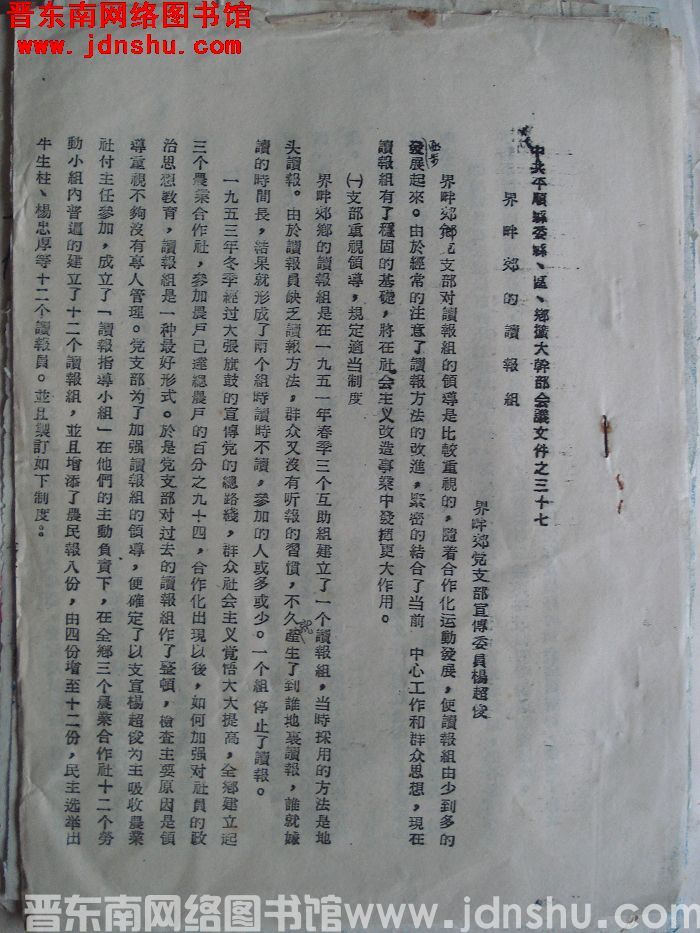 晋东南网络图书馆
www.jdnshu.com
中共平順縣委縣、区、鄉擴大幹部会議文件之三十七
界畔郊的讀報組
界畔郊党支部宣傳委員楊超俊
界畔郊鄉党支部对讀報組的領導是比較重視的，隨着合作化运動發展，使讀報組由少到多的
逐步
發展起來。由於經常的注意了讀報方法的改進，緊密的結合了当前 中心工作和群众思想，現在
讀報組有了穩固的基礎，將在社会主义改造事業中發揮更大作用。
㈠支部重視領導，規定適当制度
界畔郊鄉的讀報組是在一九五一年春季三个互助組建立了一个讀報組，当時採用的方法是地
头讀報。由於讀報員缺乏讀報方法，群众又沒有听報的習慣，不久產生了到誰地裏讀報，誰就嫌
讀的時間長，結果就形成了兩个組時讀時不讀，參加的人或多或少。一个組停止了讀報。
一九五三年冬季經过大張旗鼓的宣傳党的總路綫，群众社会主义覚悟大大提高，全鄉建立起
三个農業合作社，參加農戶已達總農戶的百分之九十四，合作化出現以後，如何加强对社員的政
治思想教育，讀報組是一种最好形式。於是党支部对过去的讀報組作了整頓，檢查主要原因是領
導重視不夠沒有專人管理。党支部为了加强讀報組的領導，便確定了以支宣楊超俊为主吸收農業
社付主任參加，成立了「讀報指導小組」在他們的主動負責下，在全鄉三个農業合作社十二个勞
動小組內普遍的建立了十二个讀報組，並且增添了農民報八份，由四份增至十二份，民主选举出
牛生柱、楊忠厚等十二个讀報員。並且製訂如下制度。：
晋东南网络图书馆 www.jdnshu.com